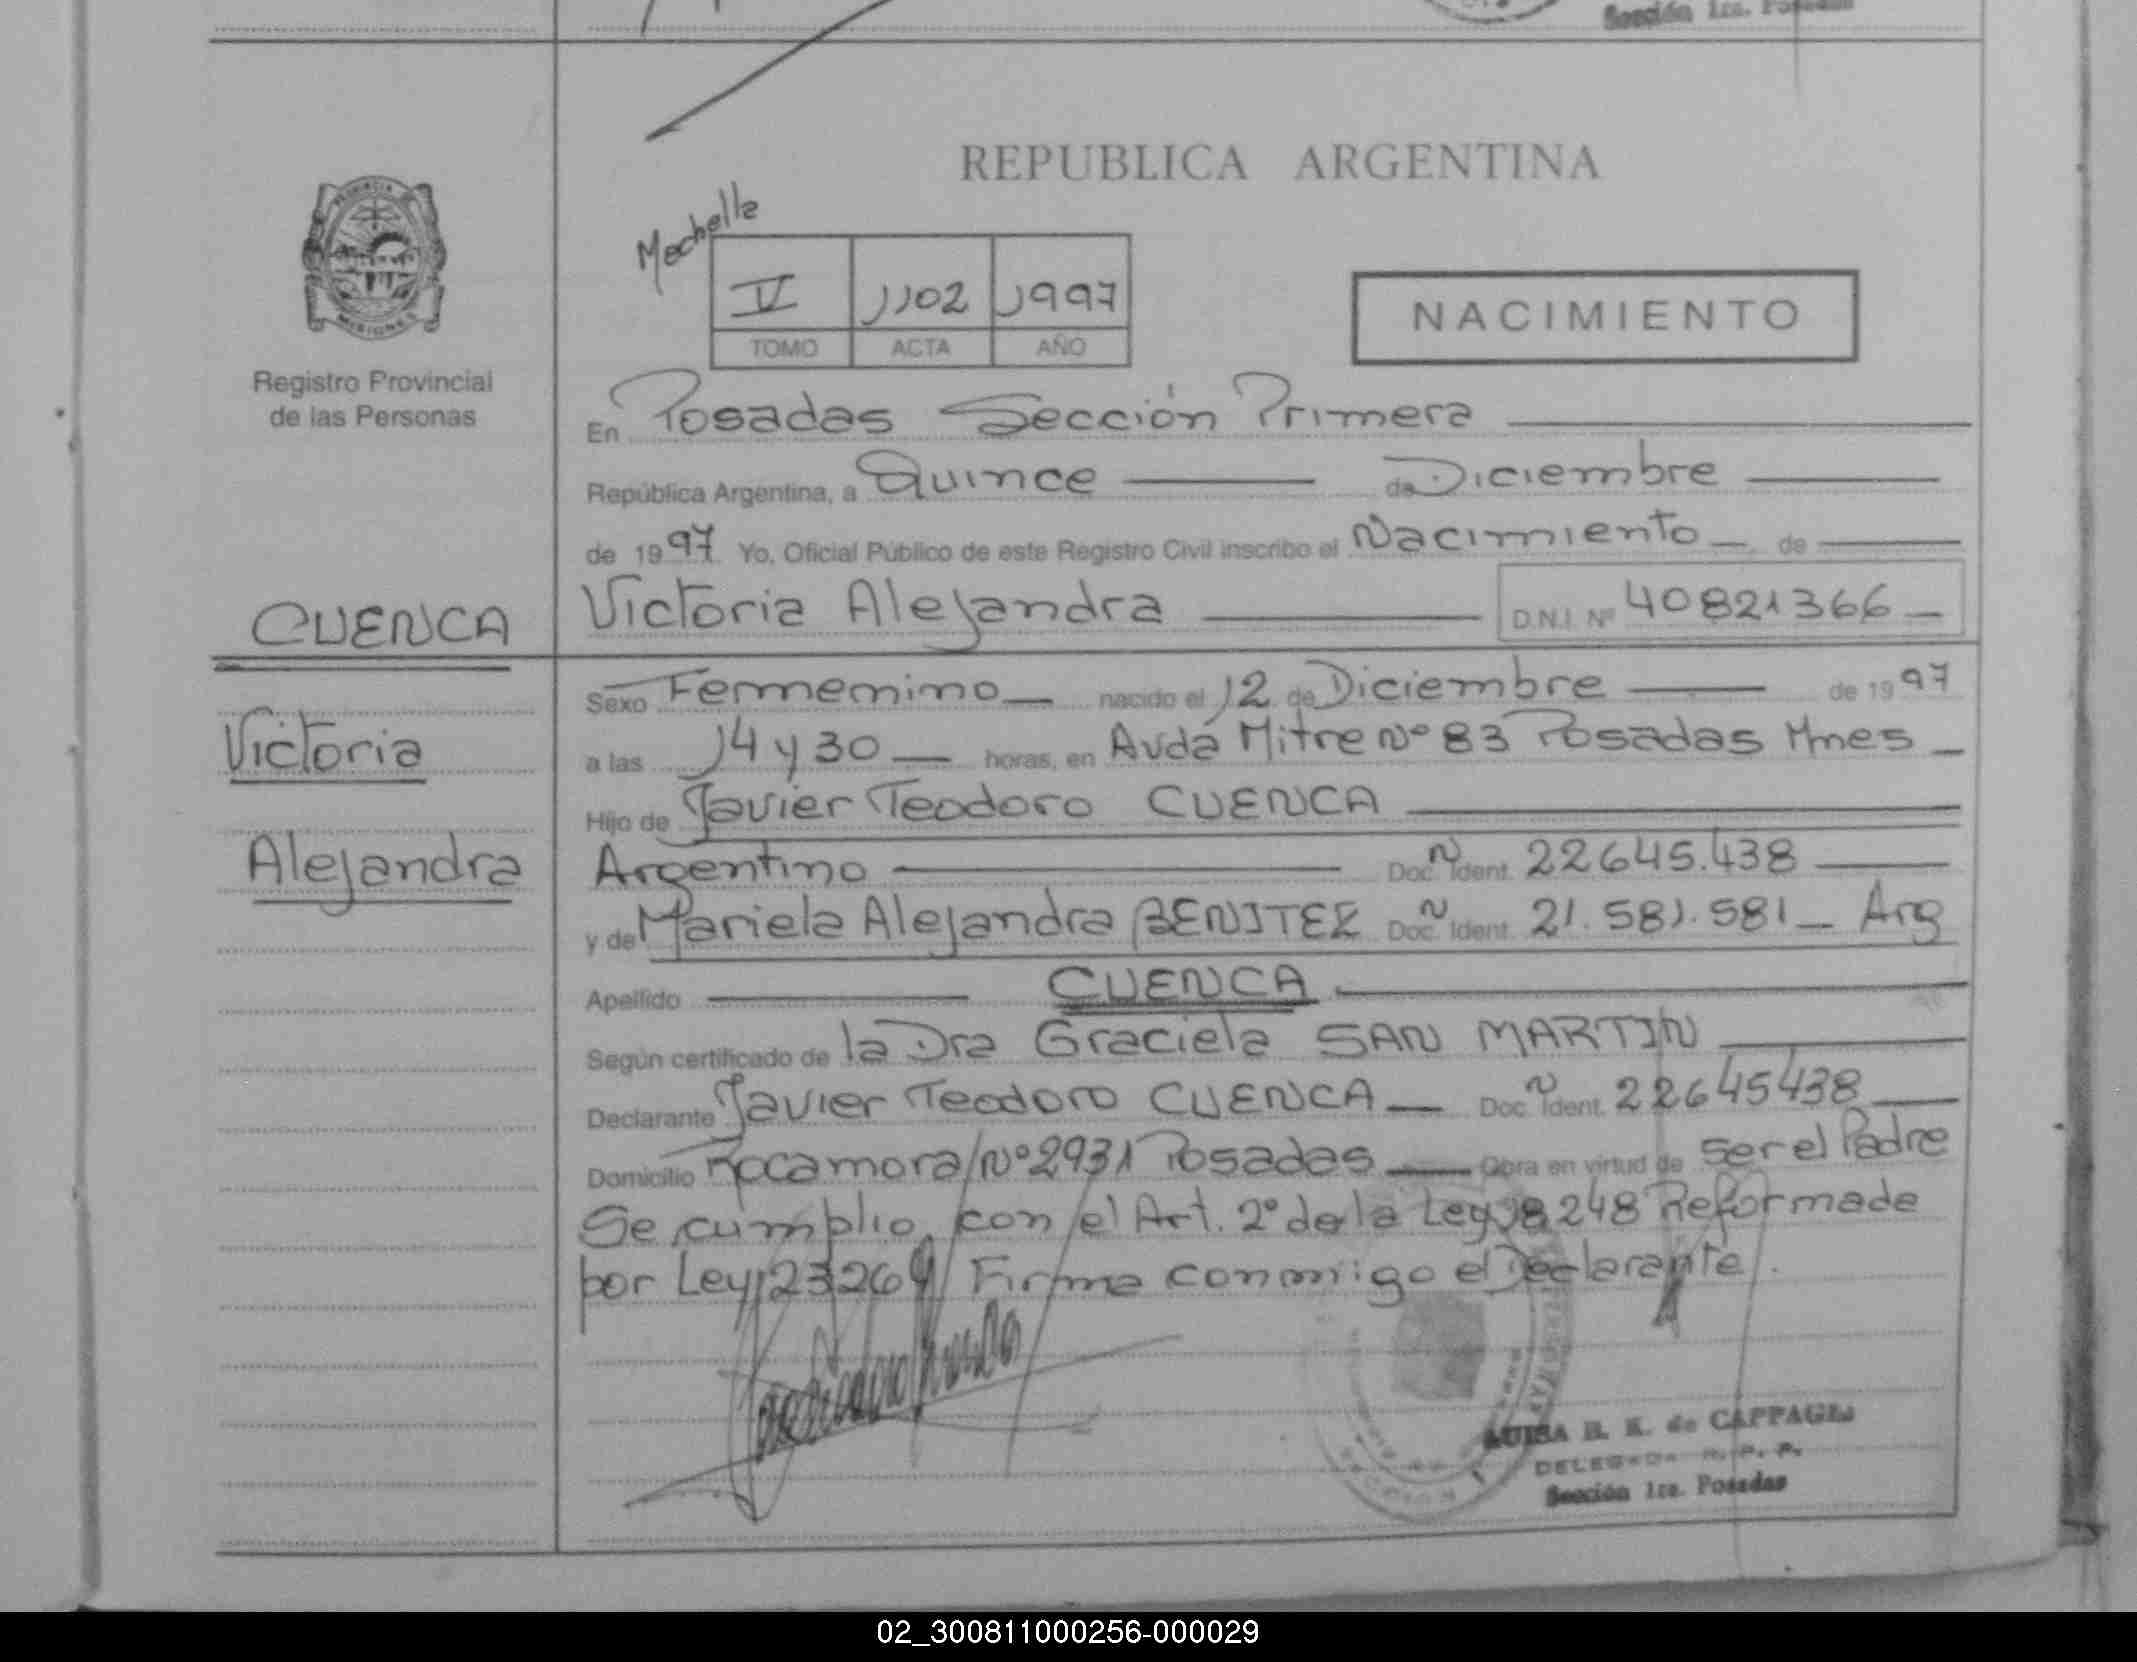 Sección 1ra. Posadas
REPUBLICA ARGENTINA
PROVINCIA
MISIONES
Registro Provincial
de las Personas
Mechella
V 1102 1997
TOMO ACTA AÑO
NACIMIENTO
En Posadas Sección Primera
República Argentina, a Quince de Diciembre
de 1997 Yo, Oficial Público de este Registro Civil inscribo el Nacimiento de
CUENCA
Victoria Alejandra D.N.I. Nº 40821366
Victoria
Alejandra
Sexo Femmenino nacido el 12 de Diciembre de 1997
a las 14 y 30 horas, en Avda Mitre Nº 83 Posadas Mnes
Hijo de Javier Teodoro CUENCA
Argentino Doc. Ident. 22645.438
y de Mariela Alejandra BENITEZ Doc. Ident. 21.581.581 Arg
Apellido CUENCA
Según certificado de la Dra Graciela SAN MARTIN
Declarante Javier Teodoro CUENCA Doc. Ident. 22645438
Domicilio Rocamora Nº 2931 Posadas Obra en virtud de ser el Padre
Se cumplio con el Art. 2º de la Ley 18248 Reformada
por Ley 23264 Firma conmigo el Declarante.
LUISA B. K. de CAPPAGLI
DELEGADA R. P. P.
Sección 1ra. Posadas
02_300811000256-000029